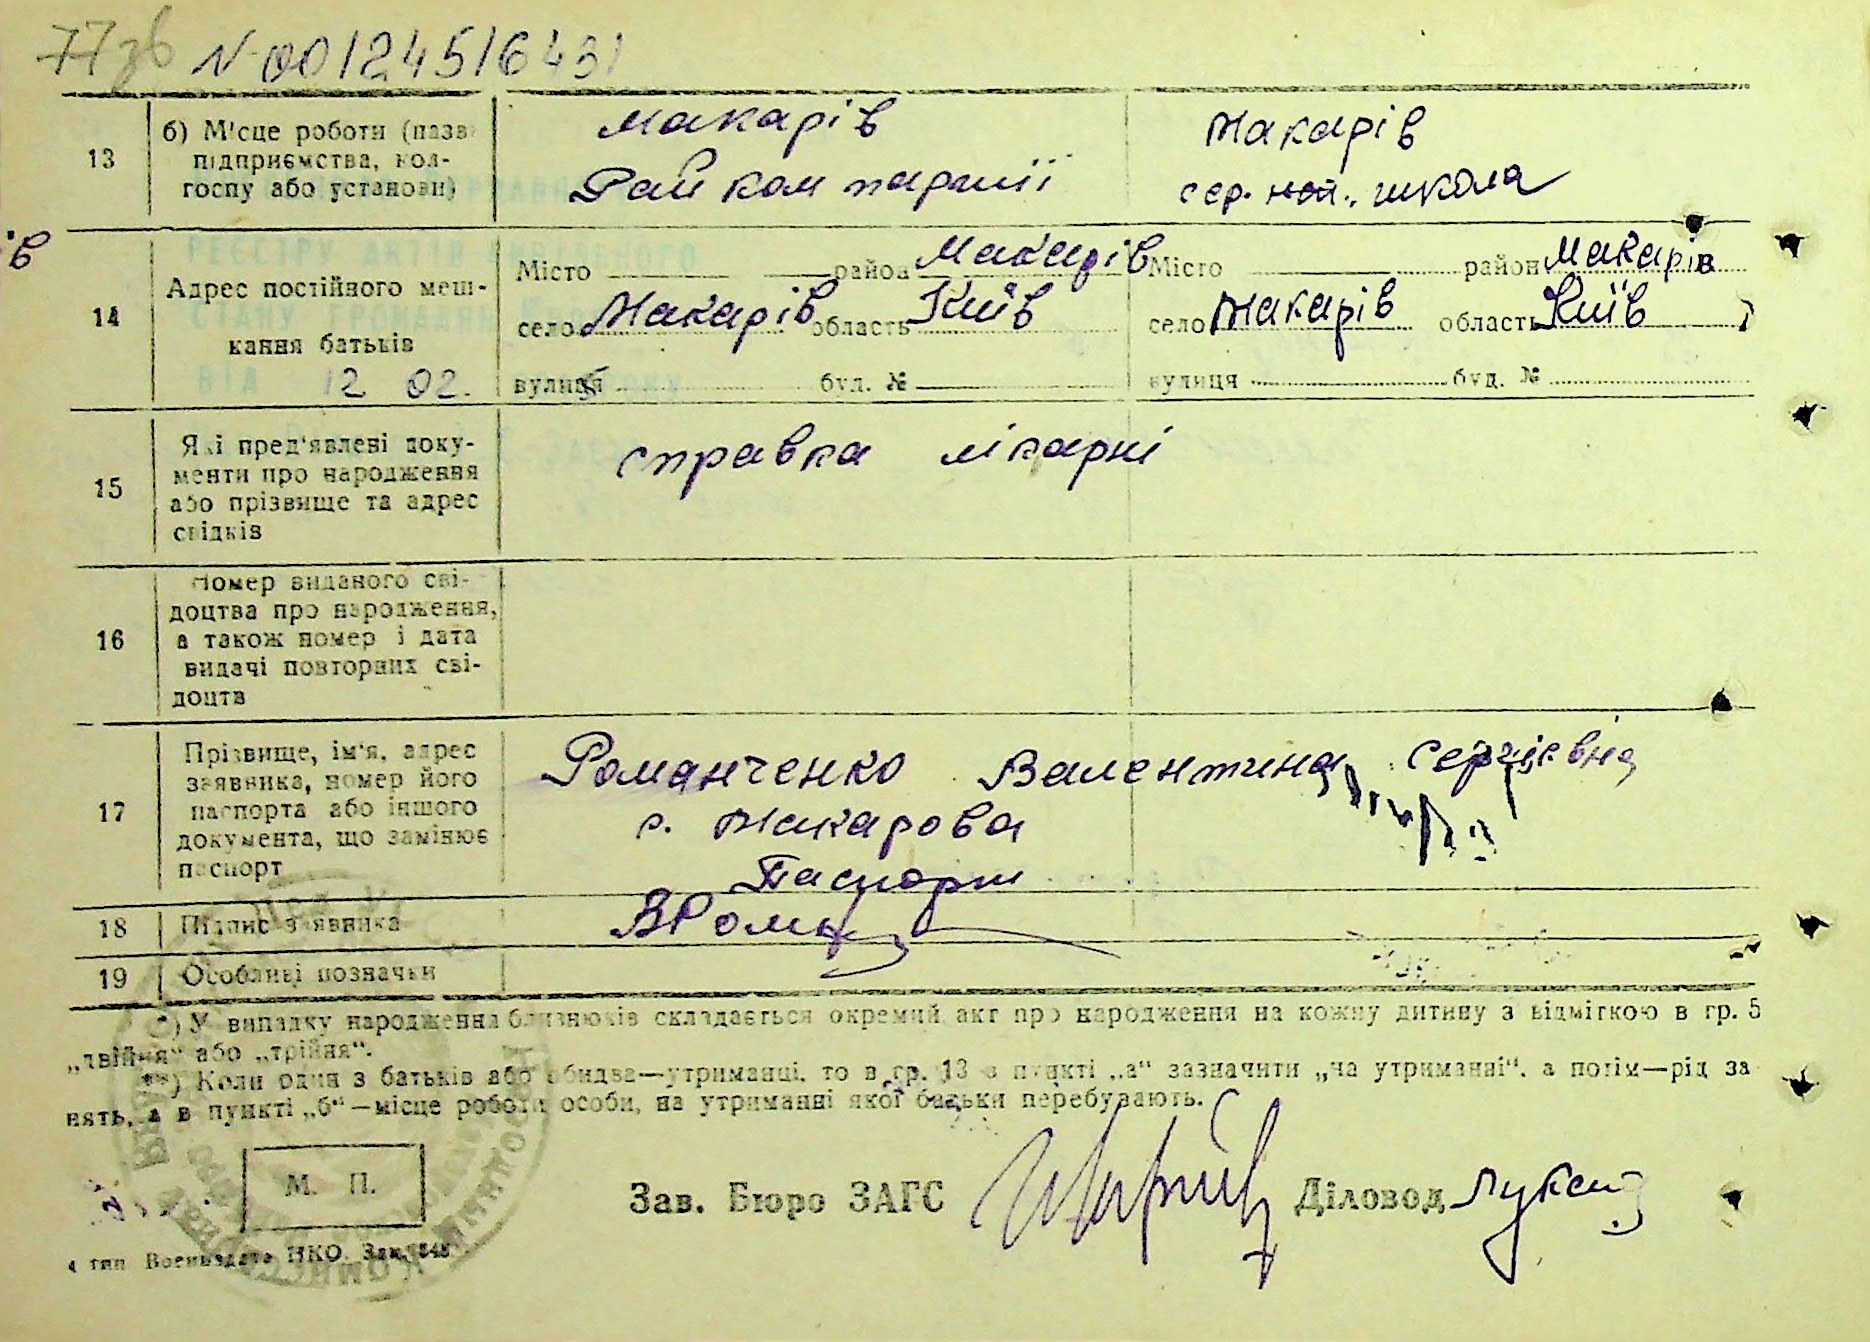 N 00124516431
13
б) М'сце роботи (назв
підприємства, кол-
госпу або установи)
Макарів
Рай ком партії
Макарів
сер. школа
ів
14
Адрес постійного меш-
кання батьків
РЕЄСТРУ АКТІВ ЦИВІЛЬНОГО
СТАНУ ГРОМАДЯН
ВІД 12 02.
Місто район Макарів
село Макарів область Київ
вулиця буд. №
Місто район Макарів
село Макарів область Київ
вулиця буд. №
15
Які пред'явлені доку-
менти про народження
або прізвище та адрес
свідків
справка лікарні
16
Номер виданого сві-
доцтва про народження,
а також номер і дата
видачі повторних сві-
доцтв
17
Прізвище, ім'я, адрес
заявника, номер його
паспорта або іншого
документа, що замінює
паспорт
Романченко Валентина Сергієвна
с. Макарова
Паспорт
18
Підпис заявника
ВРоман
19
Особливі позначки
*) У випадку народження близнюків складається окремий акт про народження на кожну дитину з відміткою в гр. 5
„двійня“ або „трійня“.
**) Коли один з батьків або обидва—утриманці, то в гр. 13 в пункті „а“ зазначити „на утриманні“, а потім—рід за
нять, а в пункті „б“—місце роботи особи, на утриманні якої батьки перебувають.
М. П.
Зав. Бюро ЗАГС
Діловод
4 тип Воениздата НКО. Зак.